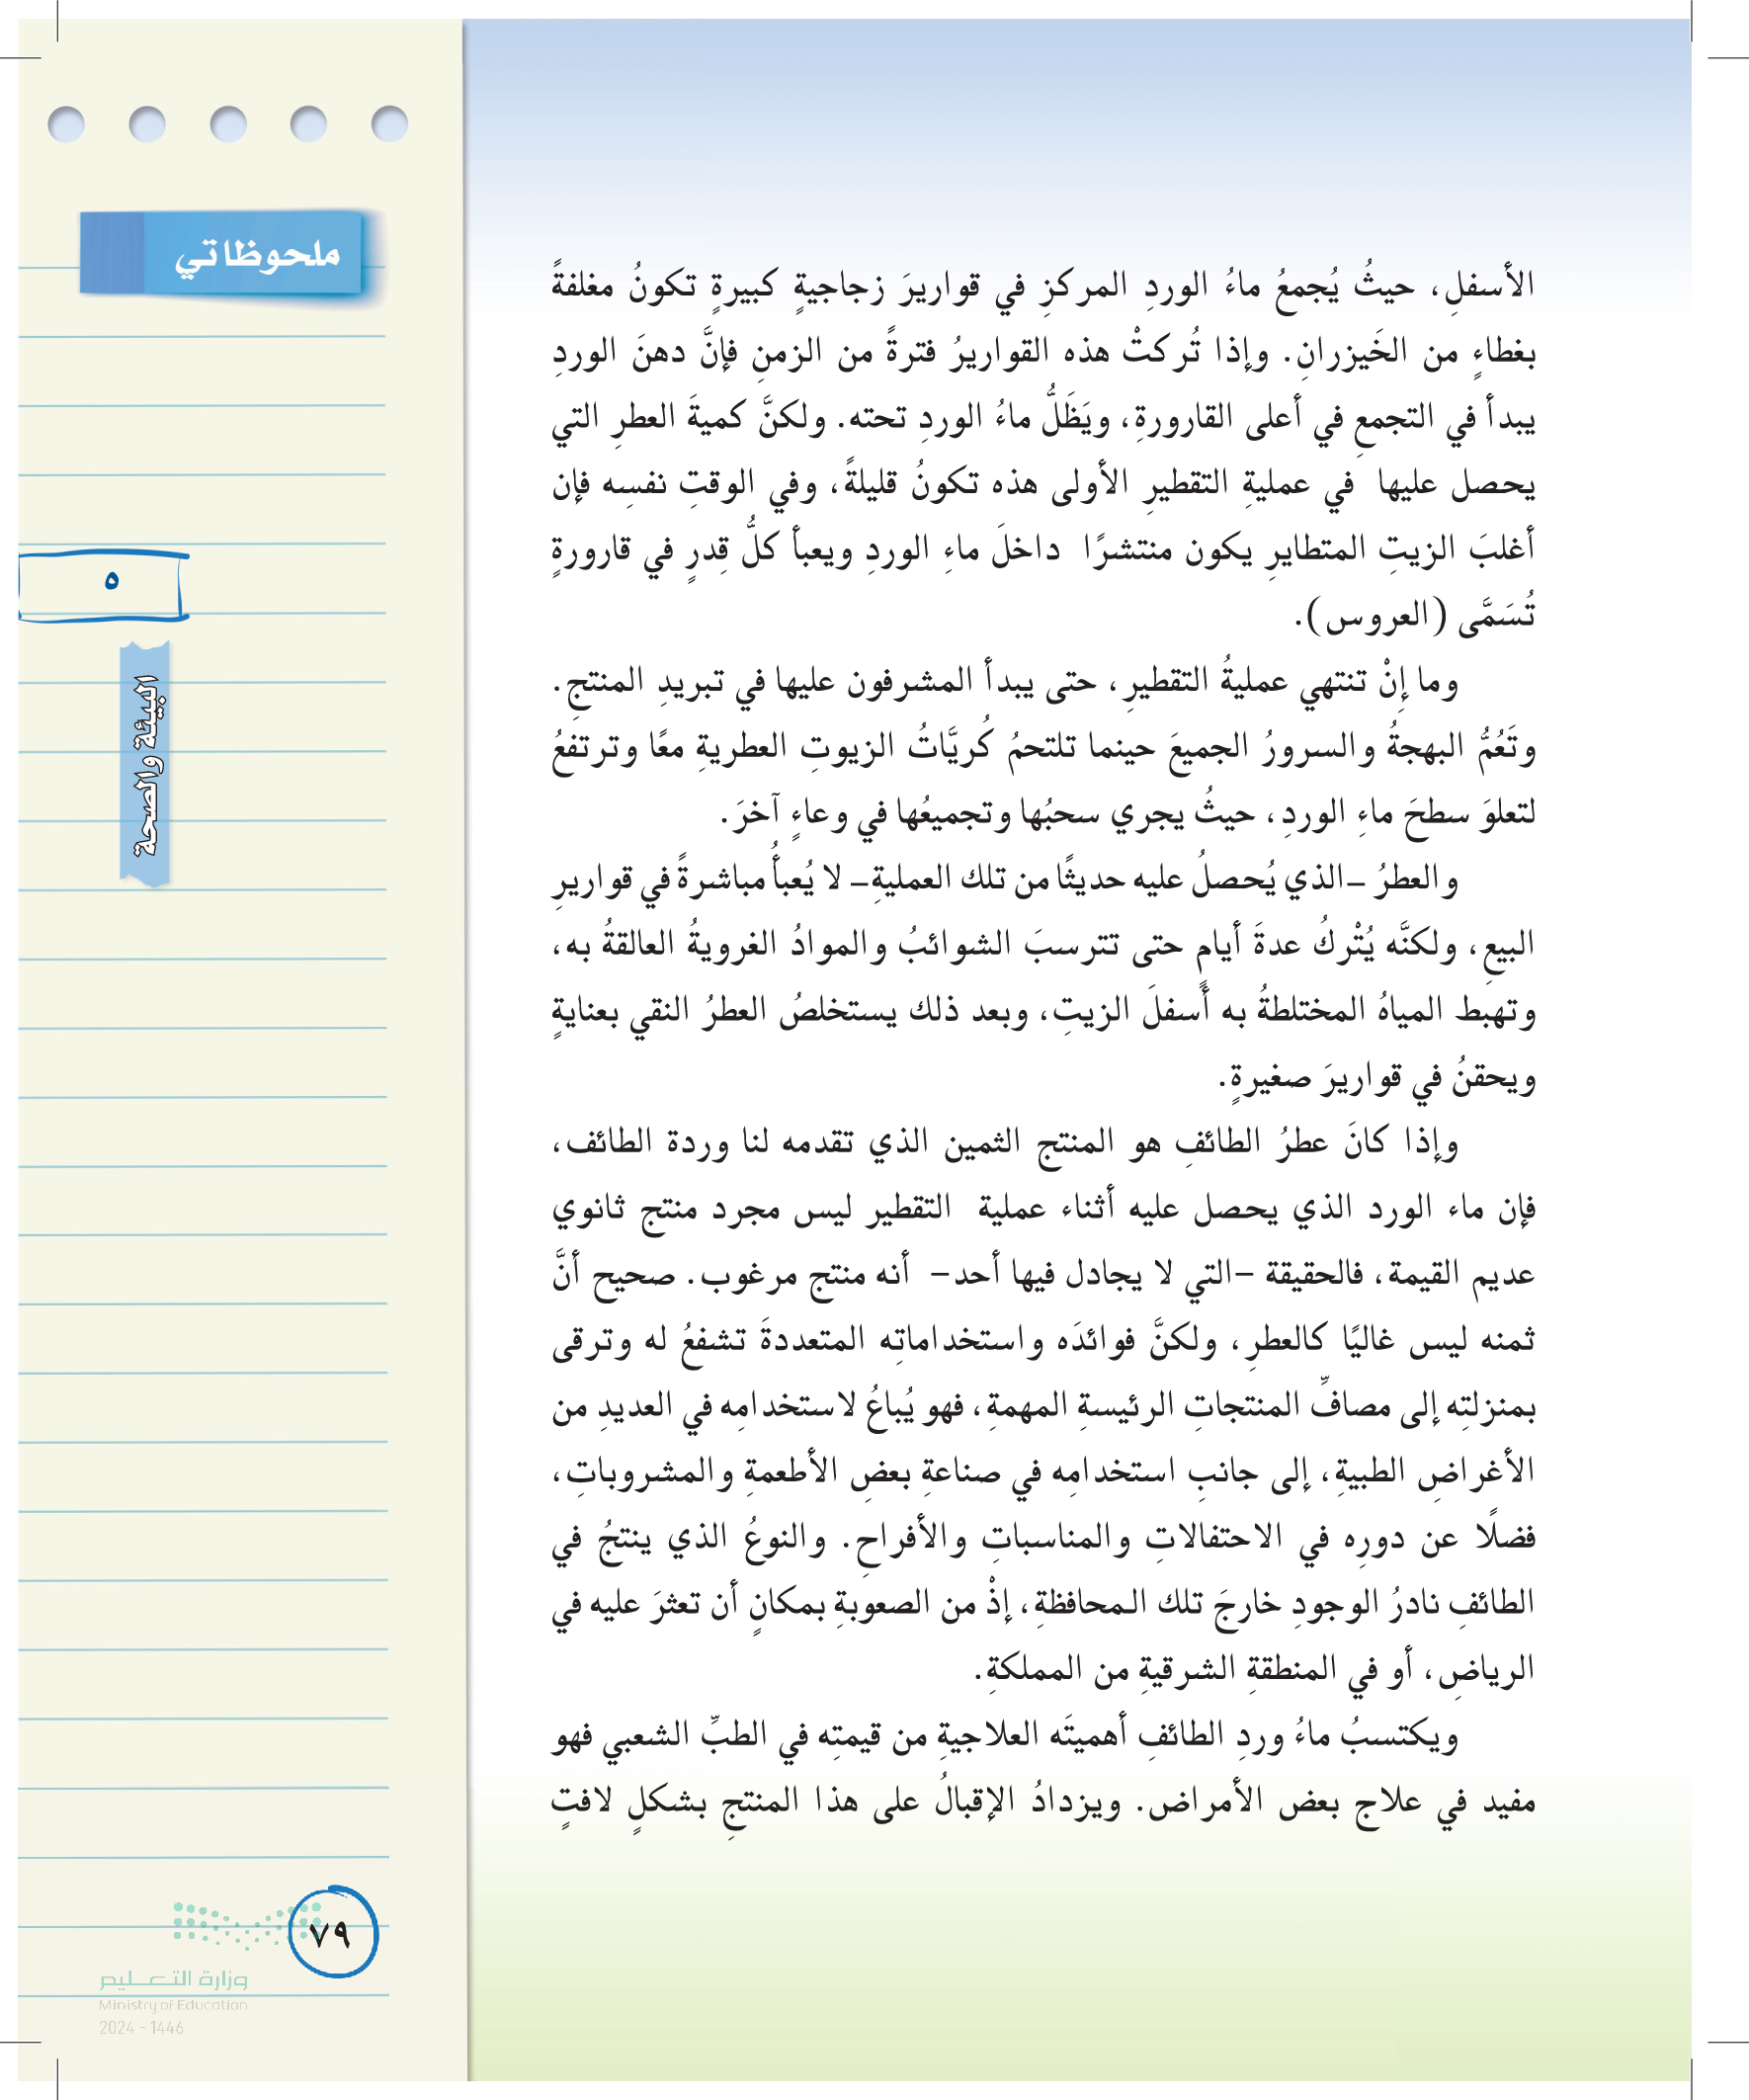 الأسفلِ، حيثُ يُجمعُ ماءُ الوردِ المركزِ في قواريرَ زجاجيةٍ كبيرةٍ تكونُ مغلفةً
بغطاءٍ من الخَيزرانِ. وإذا تُركتْ هذه القواريرُ فترةً من الزمنِ فإنَّ دهنَ الوردِ
يبدأ في التجمعِ في أعلى القارورةِ، ويَظَلُّ ماءُ الوردِ تحته. ولكنَّ كميةَ العطرِ التي
يحصل عليها في عمليةِ التقطيرِ الأولى هذه تكونُ قليلةً، وفي الوقتِ نفسِه فإن
أغلبَ الزيتِ المتطايرِ يكون منتشرًا داخلَ ماءِ الوردِ ويعبأ كلُّ قِدرٍ في قارورةٍ
تُسَمَّى (العروس).
وما إِنْ تنتهي عمليةُ التقطيرِ، حتى يبدأ المشرفون عليها في تبريدِ المنتجِ.
وتَعُمُّ البهجةُ والسرورُ الجميعَ حينما تلتحمُ كُريَّاتُ الزيوتِ العطريةِ معًا وترتفعُ
لتعلوَ سطحَ ماءِ الوردِ، حيثُ يجري سحبُها وتجميعُها في وعاءٍ آخرَ.
والعطرُ –الذي يُحصلُ عليه حديثًا من تلك العمليةِ– لا يُعبأُ مباشرةً في قواريرِ
البيعِ، ولكنَّه يُتْركُ عدةَ أيامٍ حتى تترسبَ الشوائبُ والموادُ الغرويةُ العالقةُ به،
وتهبط المياهُ المختلطةُ به أسفلَ الزيتِ، وبعد ذلك يستخلصُ العطرُ النقي بعنايةٍ
ويحقنُ في قواريرَ صغيرةٍ.
وإذا كانَ عطرُ الطائفِ هو المنتج الثمين الذي تقدمه لنا وردة الطائف،
فإن ماء الورد الذي يحصل عليه أثناء عملية التقطير ليس مجرد منتج ثانوي
عديم القيمة، فالحقيقة –التي لا يجادل فيها أحد– أنه منتج مرغوب. صحيح أنَّ
ثمنه ليس غاليًا كالعطرِ، ولكنَّ فوائدَه واستخداماتِه المتعددةَ تشفعُ له وترقى
بمنزلتِه إلى مصافِّ المنتجاتِ الرئيسةِ المهمةِ، فهو يُباعُ لاستخدامِه في العديدِ من
الأغراضِ الطبيةِ، إلى جانبِ استخدامِه في صناعةِ بعضِ الأطعمةِ والمشروباتِ،
فضلًا عن دورِه في الاحتفالاتِ والمناسباتِ والأفراحِ. والنوعُ الذي ينتجُ في
الطائفِ نادرُ الوجودِ خارجَ تلك المحافظةِ، إذْ من الصعوبةِ بمكانٍ أن تعثرَ عليه في
الرياضِ، أو في المنطقةِ الشرقيةِ من المملكةِ.
ويكتسبُ ماءُ وردِ الطائفِ أهميتَه العلاجيةِ من قيمتِه في الطبِّ الشعبي فهو
مفيد في علاج بعض الأمراض. ويزدادُ الإقبالُ على هذا المنتجِ بشكلٍ لافتٍ
ملحوظاتي
٥
البيئة والصحة
٧٩
وزارة التعليم
Ministry of Education
2024 - 1446